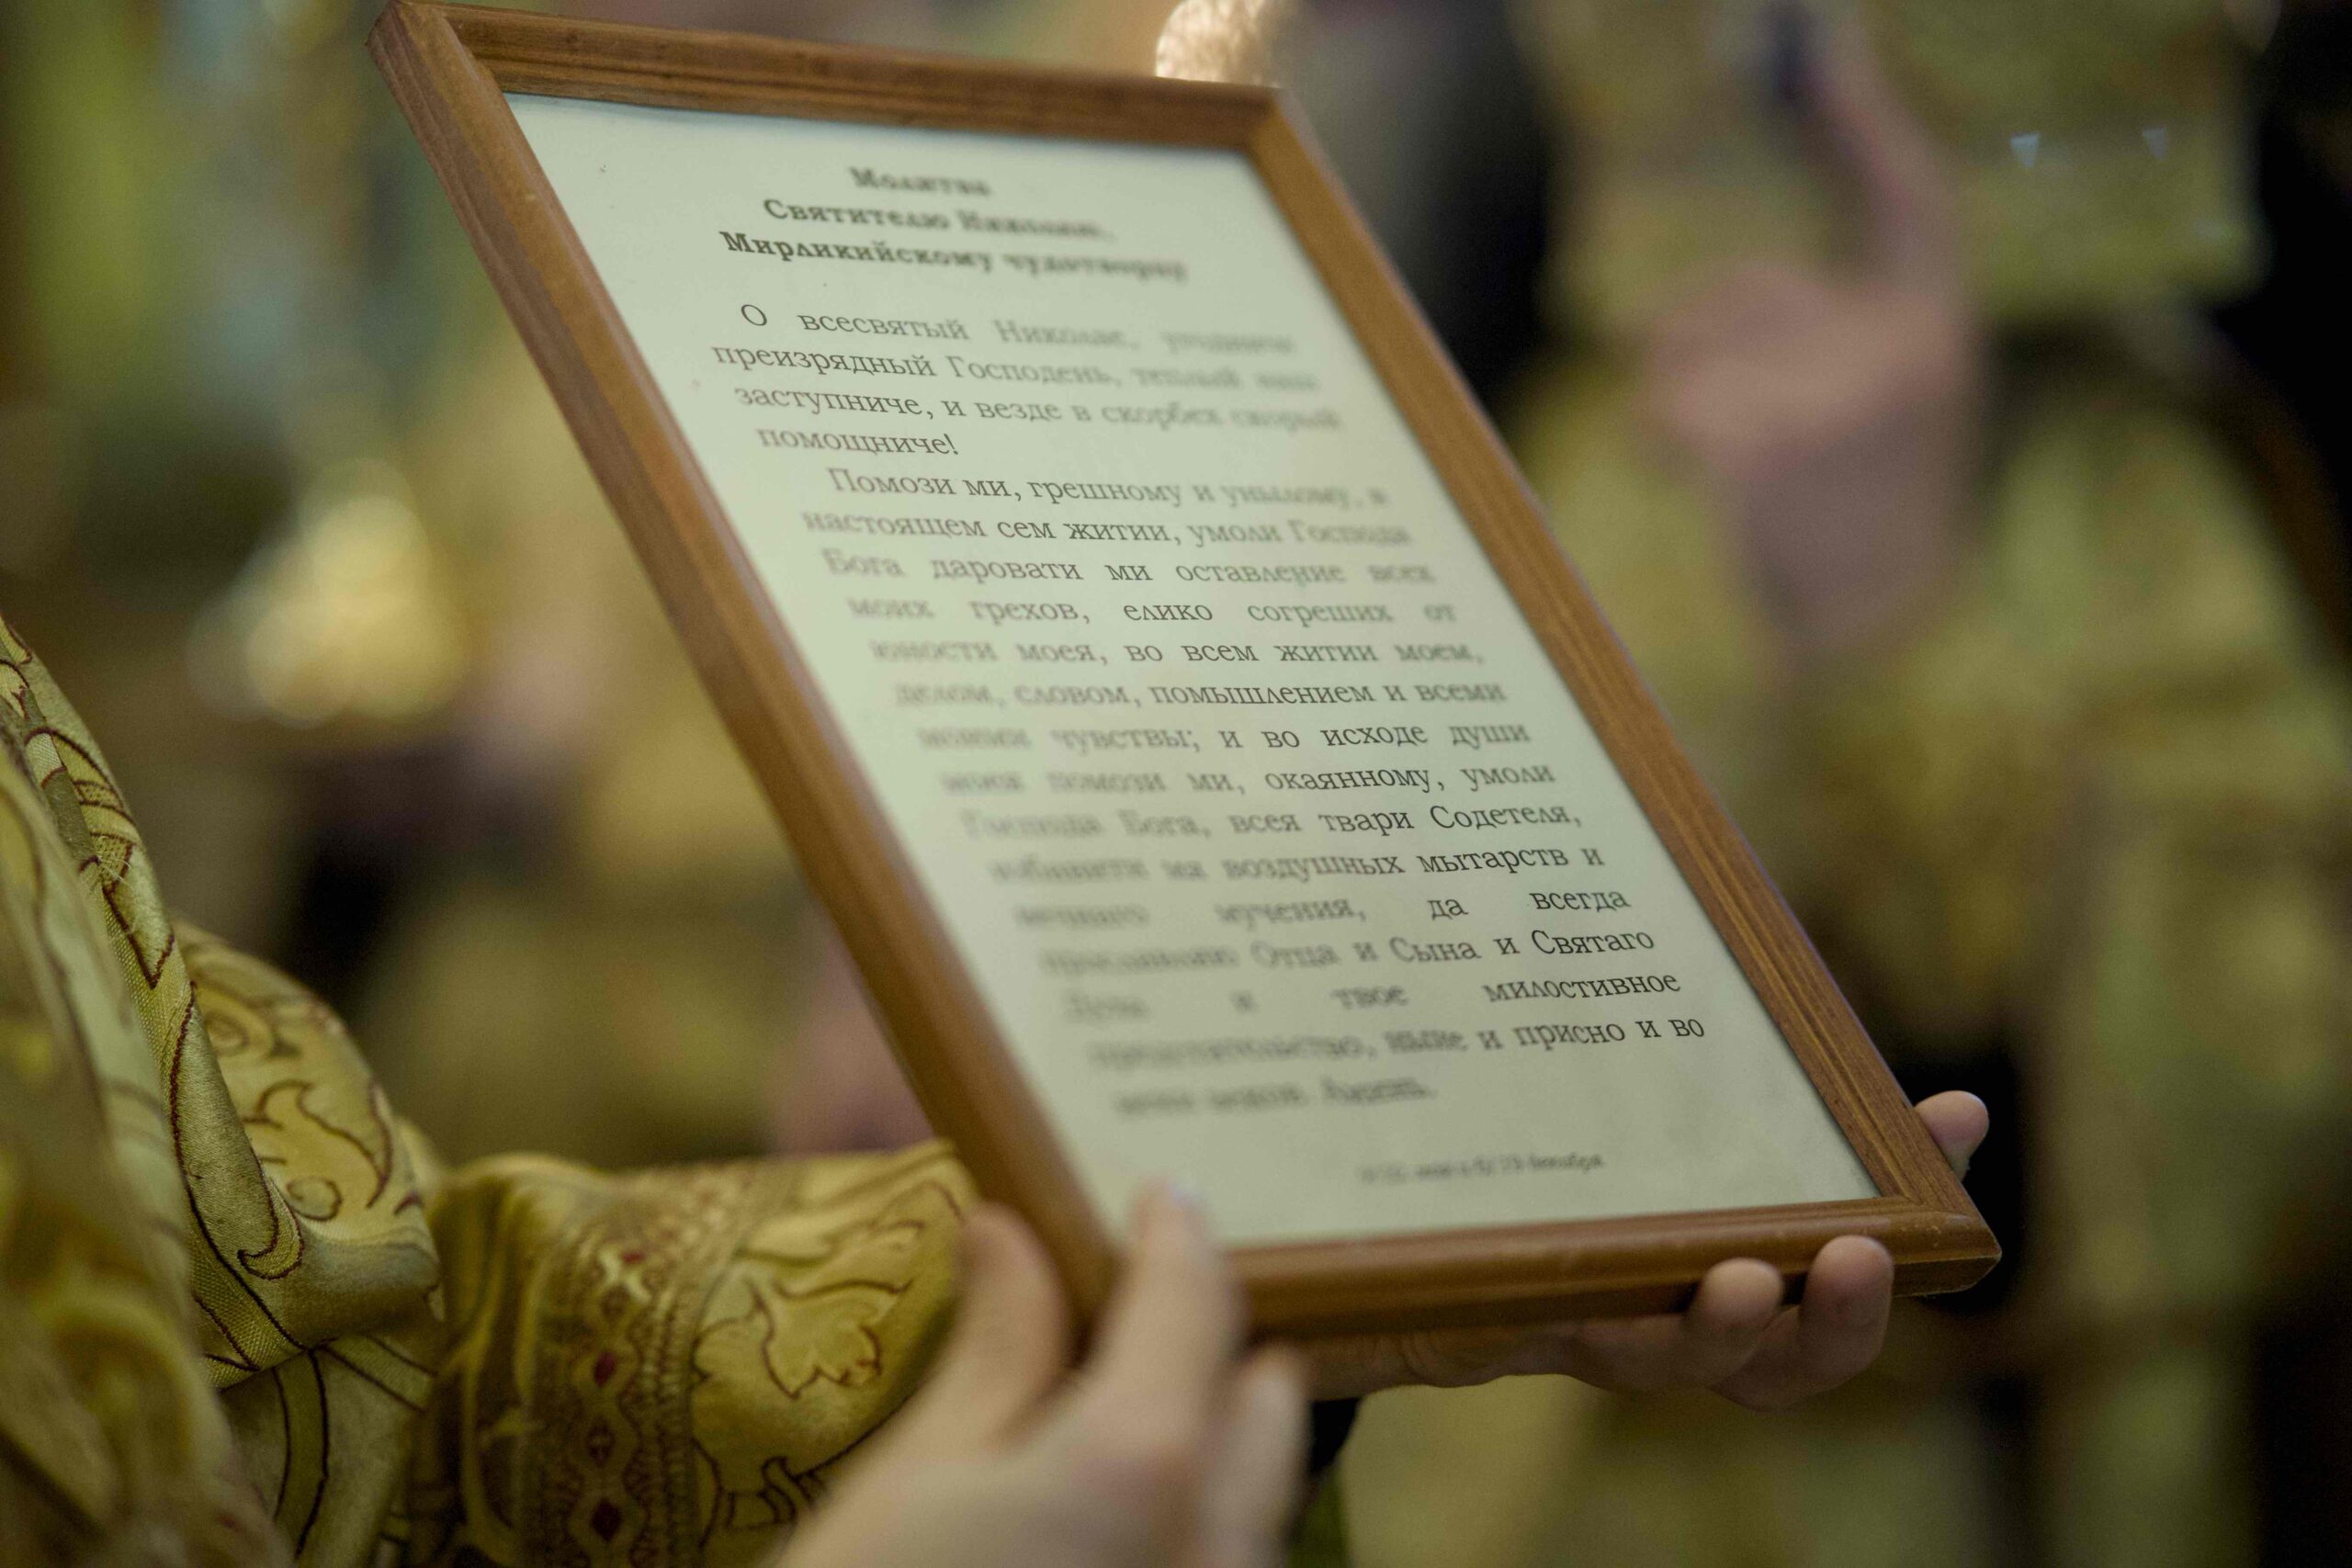 Молитва
Святителю Николаю,
Мирликийскому чудотворцу
О всесвятый Николае, угодниче
преизрядный Господень, теплый наш
заступниче, и везде в скорбех скорый
помощниче!
Помози ми, грешному и унылому, в
настоящем сем житии, умоли Господа
Бога даровати ми оставление всех
моих грехов, елико согреших от
юности моея, во всем житии моем,
делом, словом, помышлением и всеми
моими чувствы; и во исходе души
моея помози ми, окаянному, умоли
Господа Бога, всея твари Содетеля,
избавити мя воздушных мытарств и
вечнаго мучения, да всегда
прославляю Отца и Сына и Святаго
Духа и твое милостивное
предстательство, ныне и присно и во
веки веков. Аминь.